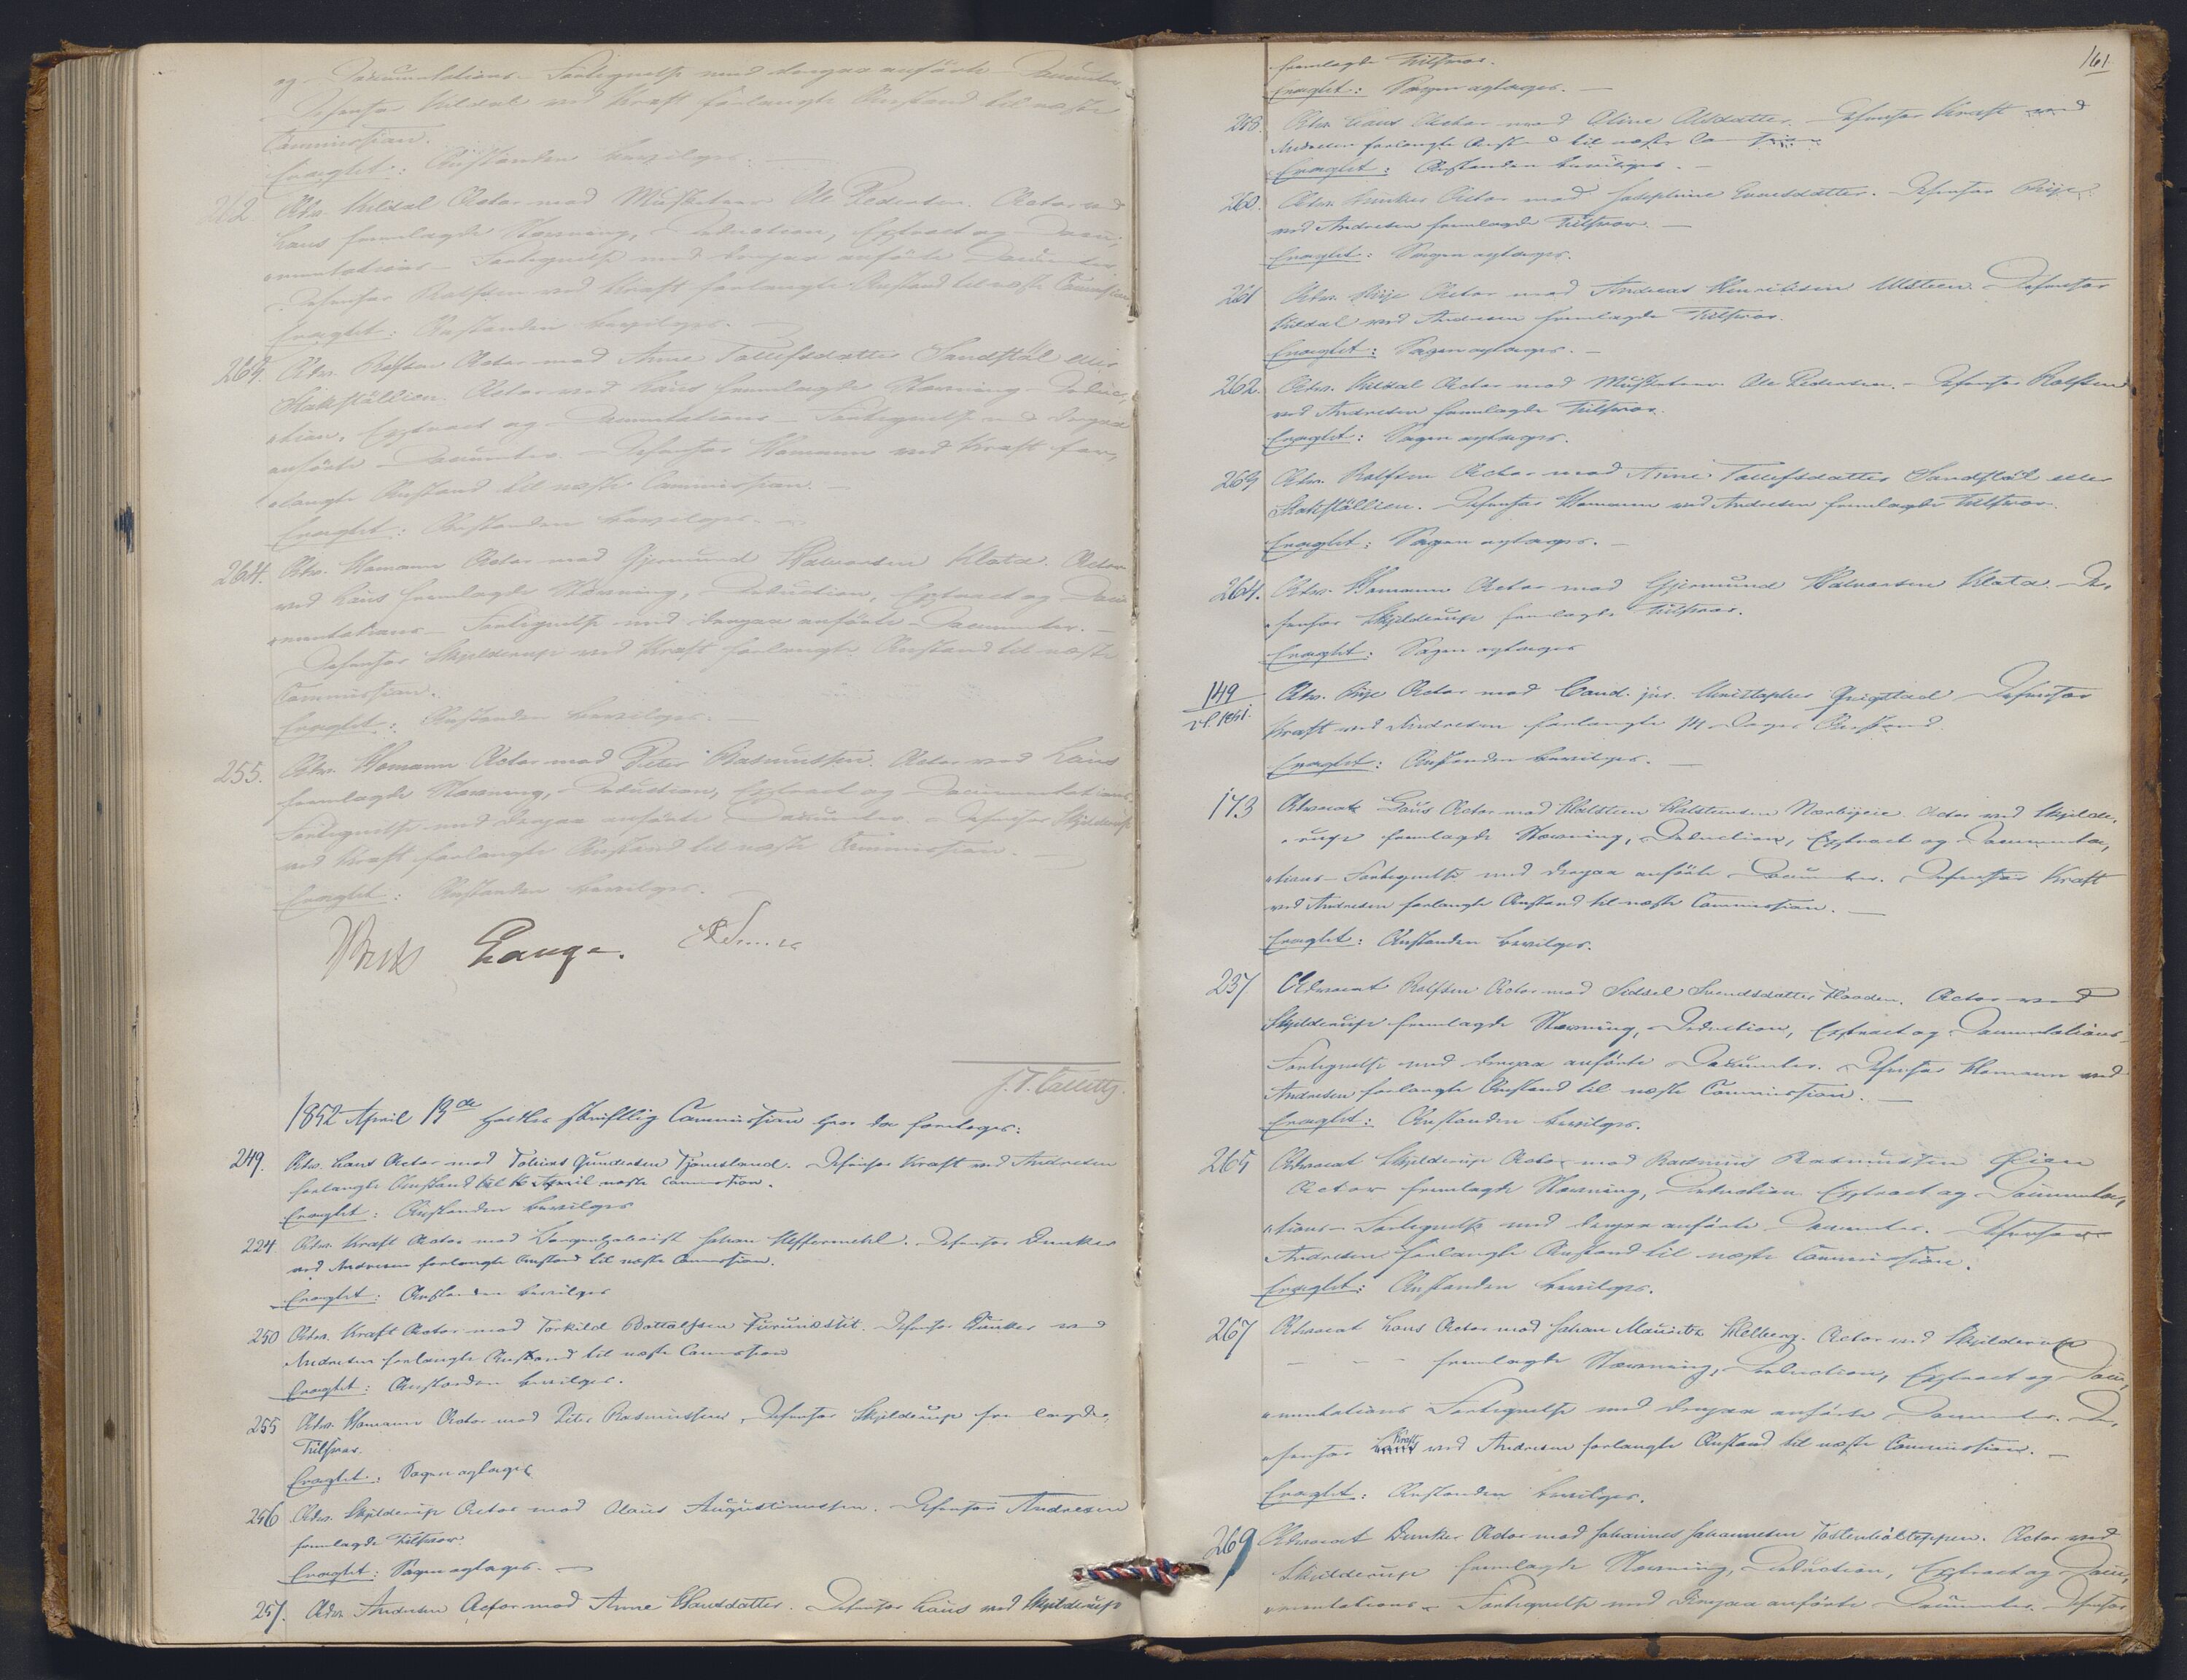 og Documentations-Fortegnelse med deraar anførte Documenter.
Defensor Kildal ved Kraft forlangte Anstand til næste
Commission.
Eragtet: Anstanden bevilges.
262. Adv. Kildal Actor mod Musketeer Ole Pedersen. Actor ved
Haus fremlagde Stævning, Deduction, Extract og Docu-
mentations-Fortegnelse med deraar anførte Documenter.
Defensor Rolfsen ved Kraft forlangte Anstand til næste Commission
Eragtet: Anstanden bevilges.
263. Adv. Rolfsen Actor mod Anne Tollefsdatter Sandstøl eller
Stakstøllien. Actor ved Haus fremlagde Stævning Deduc-
tion, Extract og Documentations-Fortegnelse med deraar
anførte Documenter. Defensor Homann ved Kraft for-
langte Anstand til næste Commission.
Eragtet: Anstanden bevilges.
264. Adv. Homann Actor mod Gjermund Halvorsen Klata. Actor
ved Haus fremlagde Stævning, Deduction, Extract og Docu-
mentations-Fortegnelse med deraar anførte Documenter.
Defensor Skjelderup ved Kraft forlangte Anstand til næste
Commission.
Eragtet: Anstanden bevilges.
255. Adv. Homann Actor mod Peter Rasmussen. Actor ved Haus
fremlagde Stævning, Deduction, Extract og Documentations
Fortegnelse med deraar anførte Documenter. Defensor Skjelderup
ved Kraft forlangte Anstand til næste Commission.
Eragtet: Anstanden bevilges.
Lange.
1852 April 13de holdtes skriftlig Commission hvor da foretoges:
249. Adv. Haus Actor mod Tobias Gundersen Tjomsland. Defensor Kraft ved Andresen
forlangte Anstand til næste Commission.
Eragtet: Anstanden bevilges
224 Adv. Kraft Actor mod Johan Heffermehl. Defensor Dunker
ved Andresen forlangte Anstand til næste Commission.
Eragtet: Anstanden bevilges
250 Adv. Kraft Actor mod Torkild Bottolfsen. Defensor Dunker ved
Andresen forlangte Anstand til næste Commission
Eragtet: Anstanden bevilges.
255 Adv. Homann Actor mod Peter Rasmussen, Defensor Skjelderup fremlagde
Tilsvar.
Eragtet: Sagen optages
256 Adv. Skjelderup Actor mod Claus Augustinussen. Defensor Andresen
fremlagde Tilsvar.
Eragtet: Sagen optages.
257. Adv. Andresen Actor mod Anne Hansdatter. Defensor Haus ved Skjelderup
161.
fremlagde Tilsvar.
Eragtet: Sagen optages.
258. Adv. Haus Actor mod Oline Olsdatter. Defensor Kraft ved
Andresen forlangte Anstand til næste Commission
Eragtet: Anstanden bevilges.
260. Adv. Dunker Actor mod Josephine Evensdatter. Defensor
ved Andresen fremlagde Tilsvar.
Eragtet: Sagen optages.
261 Adv. Actor mod Andreas Henriksen Ulsteen. Defensor
Kildal ved Andresen fremlagde Tilsvar.
Eragtet: Sagen optages.
262. Adv. Kildal Actor mod Musketeer Ole Pedersen. Defensor Rolfsen
ved Andresen fremlagde Tilsvar.
Eragtet: Sagen optages.
263 Adv. Rolfsen Actor mod Anne Tollefsdatter Sandstøl eller
Stakstøllien. Defensor Homann ved Andresen fremlagde Tilsvar.
Eragtet: Sagen optages.
264. Adv. Homann Actor mod Gjermund Halvorsen Klata. De-
fensor Skjelderup fremlagde Tilsvar.
Eragtet: Sagen optages
149 Adv. Actor mod Cand. jur. Christopher Grigstad Defensor
Kraft ved Andresen forlangte 14 Dages Anstand
Eragtet: Anstanden bevilges.
173 Advocat Haus Actor mod Halsteen Halsteensen. Actor ved Skjelde-
rup fremlagde Stævning, Deduction, Extract og Documenta-
tions-Fortegnelse med deraar anførte Documenter. Defensor Kraft
ved Andresen forlangte Anstand til næste Commission.
Eragtet: Anstanden bevilges.
237 Advocat Rolfsen Actor mod Sidsel Svendsdatter Haaden. Actor ved
Skjelderup fremlagde Stævning, Deduction, Extract og Documentations-
Fortegnelse med deraar anførte Documenter. Defensor Homann ved
Andresen forlangte Anstand til næste Commission.
Eragtet: Anstanden bevilges.
265 Advocat Skjelderup Actor mod Rasmus Rasmussen Øien
Actor fremlagde Stævning, Deduction Extract og Documenta-
tions-Fortegnelse med deraar anførte Documenter. Defensor
Andresen forlangte Anstand til næste Commission.
Eragtet: Anstanden bevilges.
267 Advocat Haus Actor mod Johan Mauritz Helberg. Actor ved Skjelderup
fremlagde Stævning, Deduction, Extract og Docu-
mentations Fortegnelse med deraar anførte Documenter. De-
fensor Kraft ved Andresen forlangte Anstand til næste Commission.
Eragtet: Anstanden bevilges.
269 Advocat Dunker Actor mod Johannes Johannesen. Actor ved
Skjelderup fremlagde Stævning, Deduction, Extract og Docu-
mentations-Fortegnelse med deraar anførte Documenter. Defensor